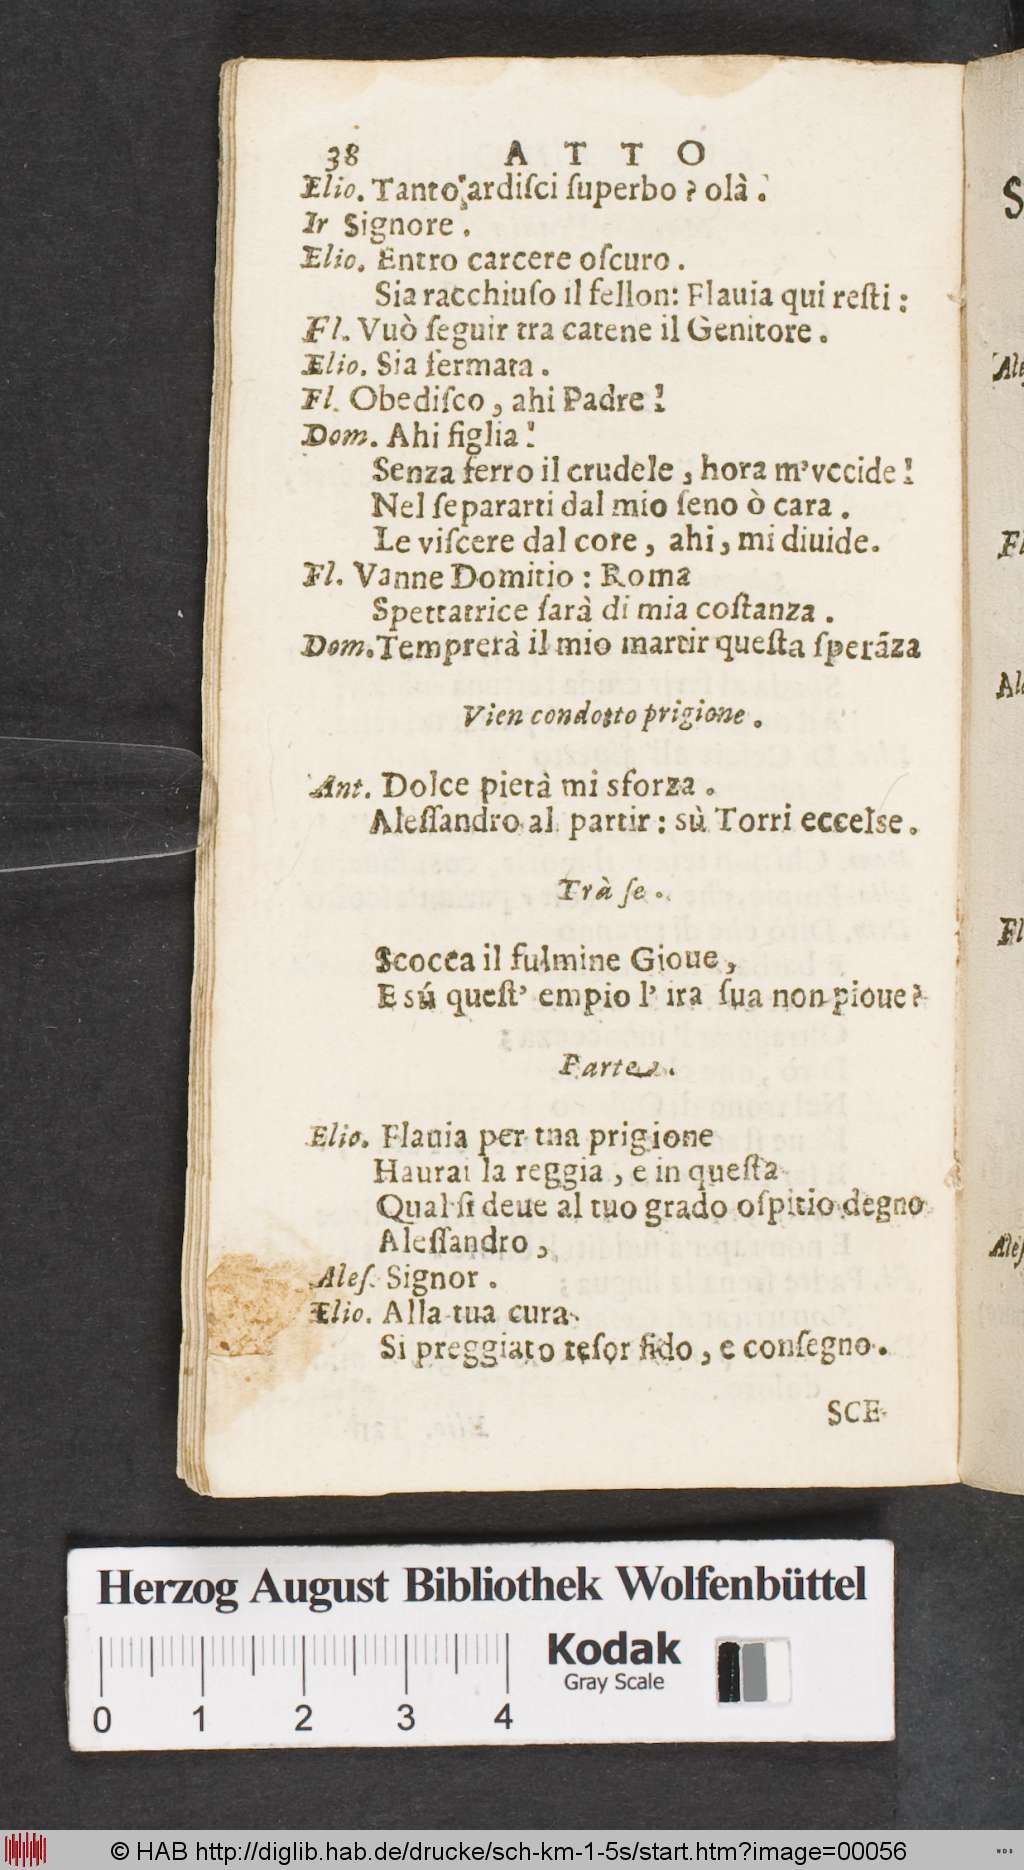 38 ATTO
Elio. Tanto ardiſci ſuperbo? olà.
Ir Signore.
Elio. Entro carcere oſcuro.
Sia racchiuſo il fellon: Flauia qui reſti:
Fl. Vuò ſeguir tra catene il Genitore.
Elio. Sia fermata.
Fl. Obediſco, ahi Padre!
Dom. Ahi figlia!
Senza ferro il crudele, hora m'vccide!
Nel ſepararti dal mio ſeno ò cara.
Le viſcere dal core, ahi, mi diuide.
Fl. Vanne Domitio: Roma
Spettatrice ſarà di mia coſtanza.
Dom. Temprerà il mio martir queſta ſperãza
Vien condotto prigione.
Ant. Dolce pietà mi sforza.
Aleſſandro al partir: sù Torri eccelse.
Trà ſe.
Scocca il fulmine Gioue,
E sú queſt' empio l' ira ſua non pioue?
Parte.
Elio. Flauia per tua prigione
Haurai la reggia, e in queſta
Qual ſi deue al tuo grado oſpitio degno
Aleſſandro,
Aleſ. Signor.
Elio. Alla tua cura
Si preggiato teſor fido, e conſegno.
SCE
S
Aleſ
Fl
Ale
Fl
Aleſ
Herzog August Bibliothek Wolfenbüttel
Kodak
Gray Scale
0 1 2 3 4
© HAB http://diglib.hab.de/drucke/sch-km-1-5s/start.htm?image=00056